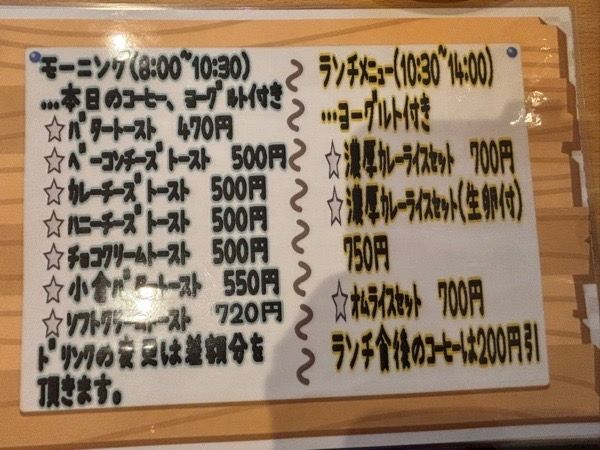 モーニング(8:00~10:30)
…本日のコーヒー、ヨーグルト付き
☆バタートースト 470円
☆ベーコンチーズトースト 500円
☆カレーチーズトースト 500円
☆ハニーチーズトースト 500円
☆チョコクリームトースト 500円
☆小倉バタートースト 550円
☆ソフトクリームトースト 720円
ドリンクの変更は差額分を
頂きます。
ランチメニュー(10:30~14:00)
…ヨーグルト付き
☆濃厚カレーライスセット 700円
☆濃厚カレーライスセット(生卵付)
750円
☆オムライスセット 700円
ランチ食後のコーヒーは200円引